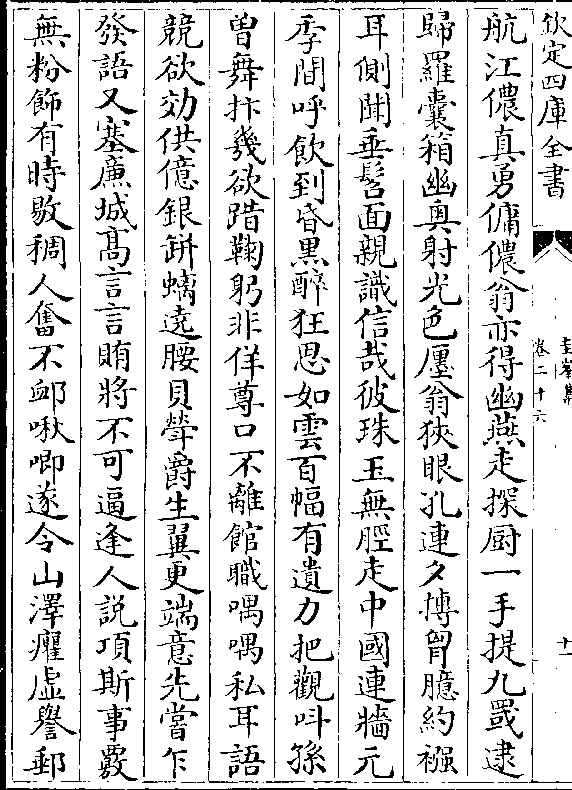 欽定四庫全書
圭峯集
卷二十六
十一
航江儂真勇傭儂翁亦得幽燕走探厨一手提九罭逮
歸羅囊箱幽奥射光色廛翁狹眼孔連夕摶胷臆約襁
耳側聞垂髫面親識信哉彼珠玉無脛走中國連牆元
季間呼飲到昏黒醉狂思如雲百幅有遺力把觀呌孫
曽舞抃幾欲踣鞠躬非佯尊口不離館職喁喁私耳語
競欲効供億銀缾螭遶腰貝斝爵生翼更端意先當乍
發語又塞㢘城髙言言賄將不可逼逢人説項斯事覈
無粉飾有時敭稠人奮不䘏啾唧遂令山澤癯虛譽郵